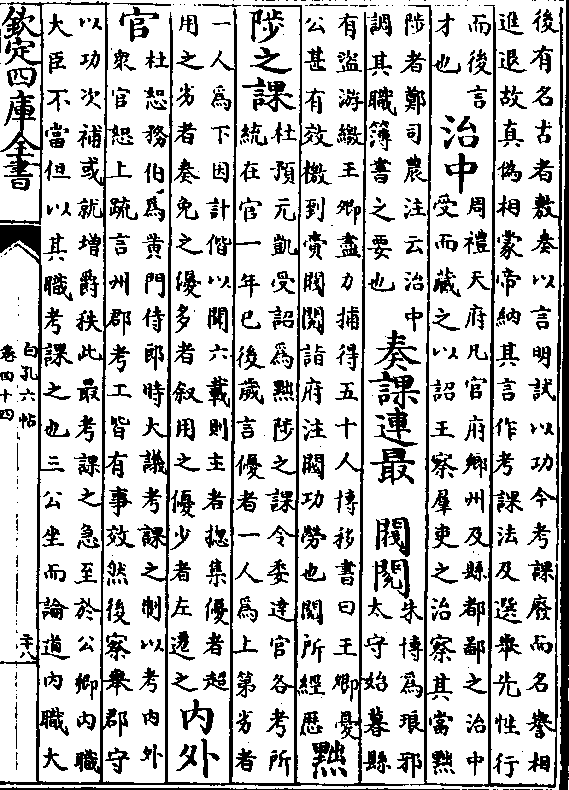 後有名古者敷奏以言明試以功今考課廢而名譽相
進退故真偽相蒙帝納其言作考課法及選舉先性行
而後言
才也
治中
周禮天府凡官府鄉州及縣都鄙之治中
受而藏之以詔王察羣吏之治察其當黜
陟者鄭司農注云治中
調其職簿書之要也
奏課連最
閥閱
朱博為琅邪
太守始暮縣
有盜游繳王卿盡力捕得五十人博移書曰王卿憂
公甚有效檄到賫閥閱詣府注閥功勞也閱所經歷
黜
陟之課
杜預元凱受詔為黜陟之課令委達官各考所
統在官一年已後歲言優者一人為上第劣者
一人為下因計偕以聞六載則主者揔集優者超
用之劣者奏免之優多者叙用之優少者左遷之
內外
官
杜恕務伯為黃門侍郎時大議考課之制以考內外
衆官恕上疏言州郡考工皆有事效然後察舉郡守
以功次補或就增爵秩此最考課之急至於公卿內職
大臣不當但以其職考課之也三公坐而論道內職大
欽定四庫全書
白孔六帖
卷四十四
二十八